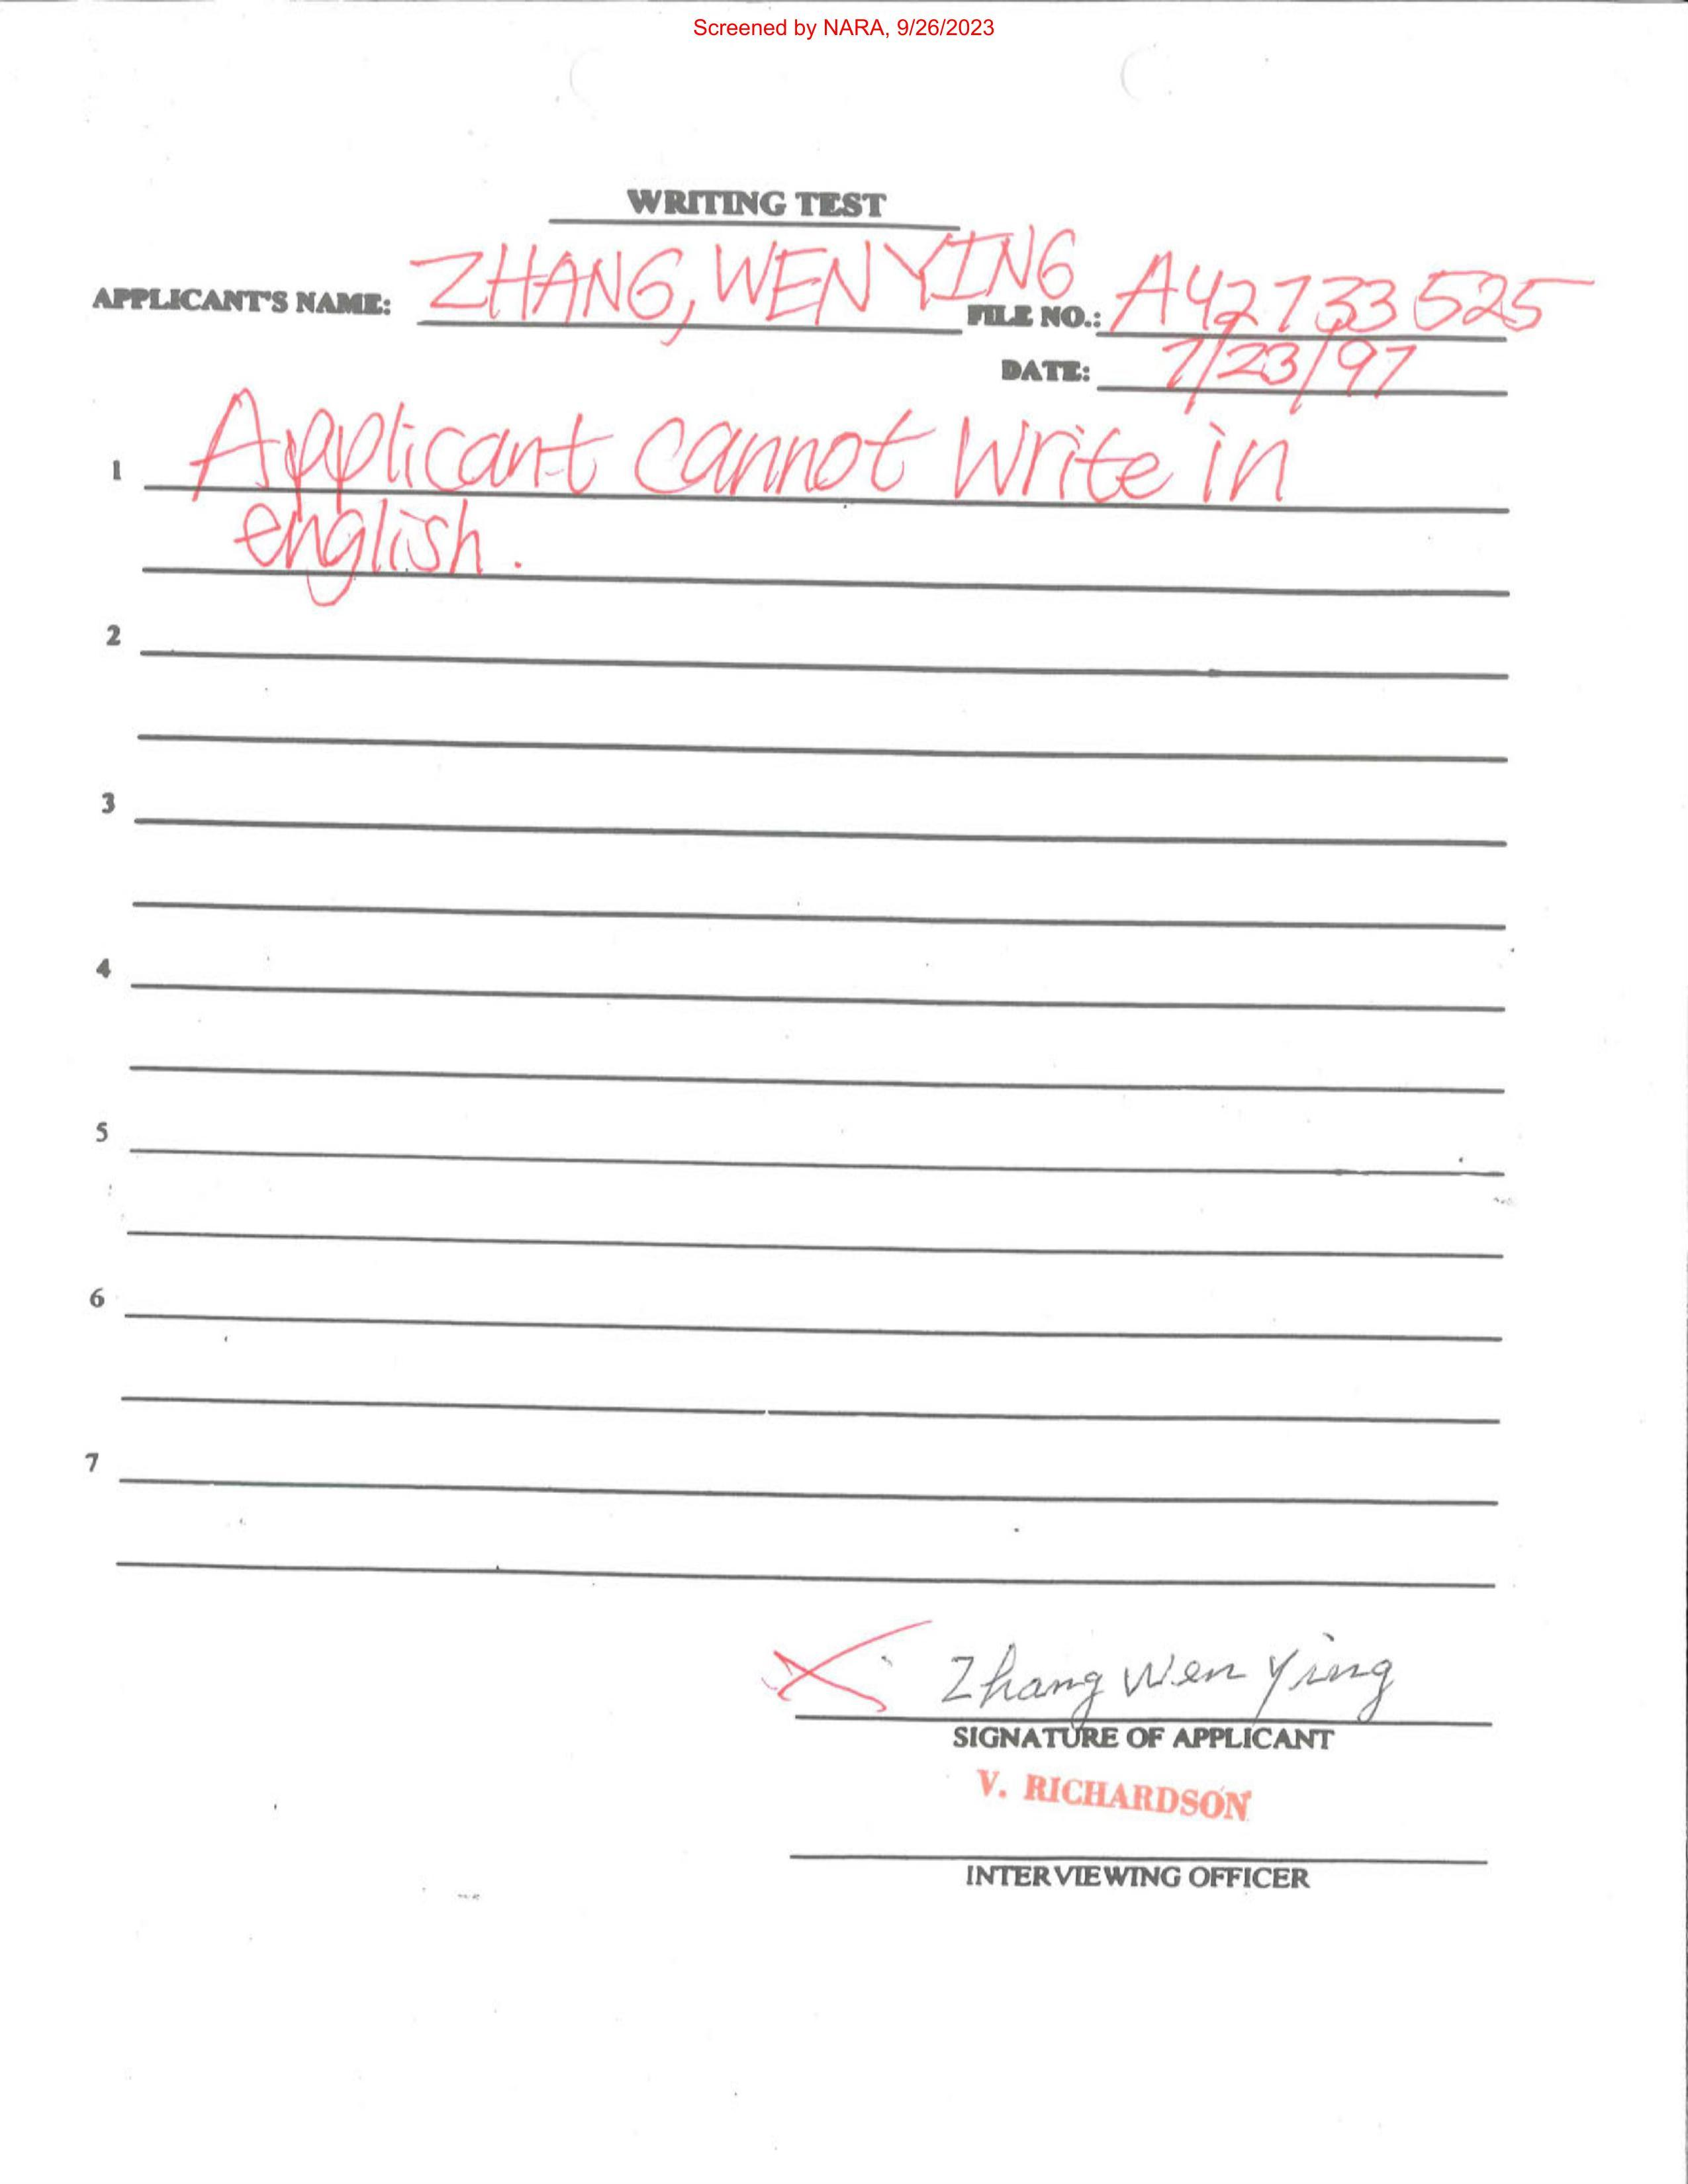 Screened by NARA, 9/26/2023
WRITING TEST
APPLICANT'S NAME: ZHANG, WEN YING FILE NO.: A42 733 525
DATE: 7/23/97
1 Applicant cannot write in
english.
2
3
4
5
6
7
X Zhang Wen Ying
SIGNATURE OF APPLICANT
V. RICHARDSON
INTERVIEWING OFFICER